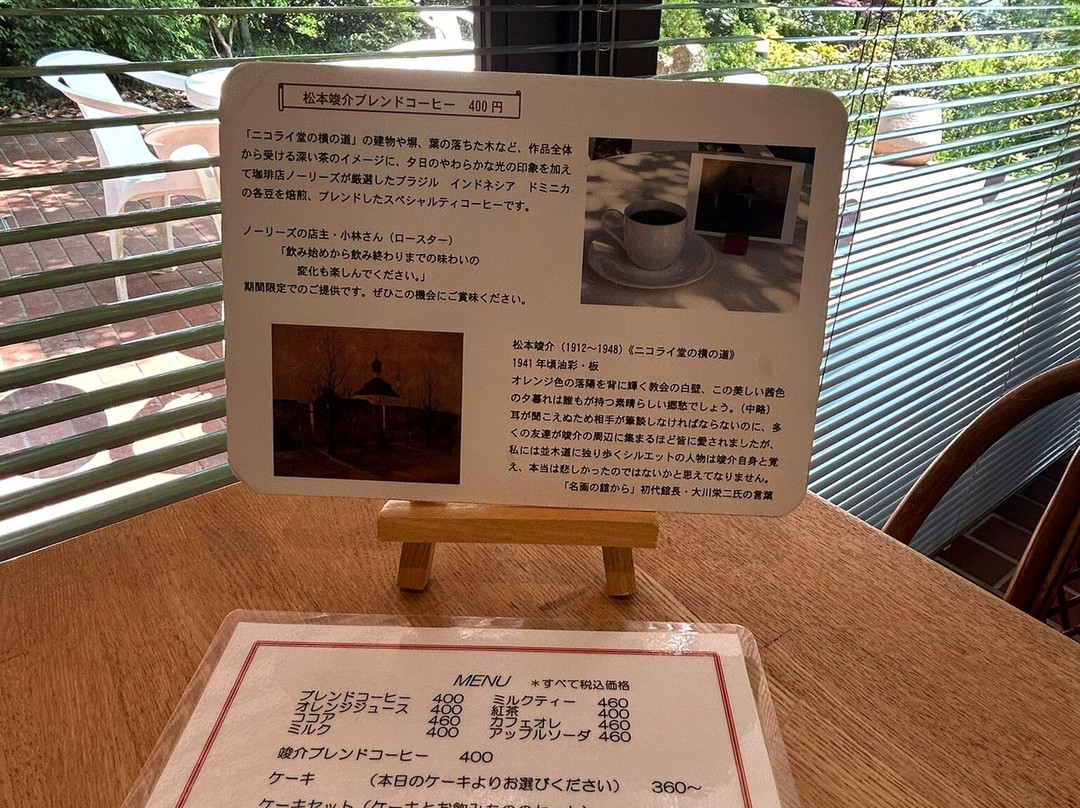 松本竣介ブレンドコーヒー 400円
「ニコライ堂の横の道」の建物や塀、葉の落ちた木など、作品全体
から受ける深い茶のイメージに、夕日のやわらかな光の印象を加え
て珈琲店ノーリーズが厳選したブラジル　インドネシア　ドミニカ
の各豆を焙煎、ブレンドしたスペシャルティコーヒーです。
ノーリーズの店主・小林さん（ロースター）
「飲み始めから飲み終わりまでの味わいの
変化も楽しんでください。」
期間限定でのご提供です。ぜひこの機会にご賞味ください。
松本竣介（1912～1948）《ニコライ堂の横の道》
1941年頃油彩・板
オレンジ色の落陽を背に輝く教会の白壁、この美しい茜色
の夕暮れは誰もが持つ素晴らしい郷愁でしょう。（中略）
耳が聞こえぬため相手が筆談しなければならないのに、多
くの友達が竣介の周辺に集まるほど皆に愛されましたが、
私には並木道に独り歩くシルエットの人物は竣介自身と覚
え、本当は悲しかったのではないかと思えてなりません。
「名画の館から」初代館長・大川栄二氏の言葉
MENU ＊すべて税込価格
ブレンドコーヒー 400 ミルクティー 460
オレンジジュース 400 紅茶 400
ココア 460 カフェオレ 460
ミルク 400 アップルソーダ 460
竣介ブレンドコーヒー 400
ケーキ （本日のケーキよりお選びください） 360～
ケーキセット（ケーキとお飲みもののセット）